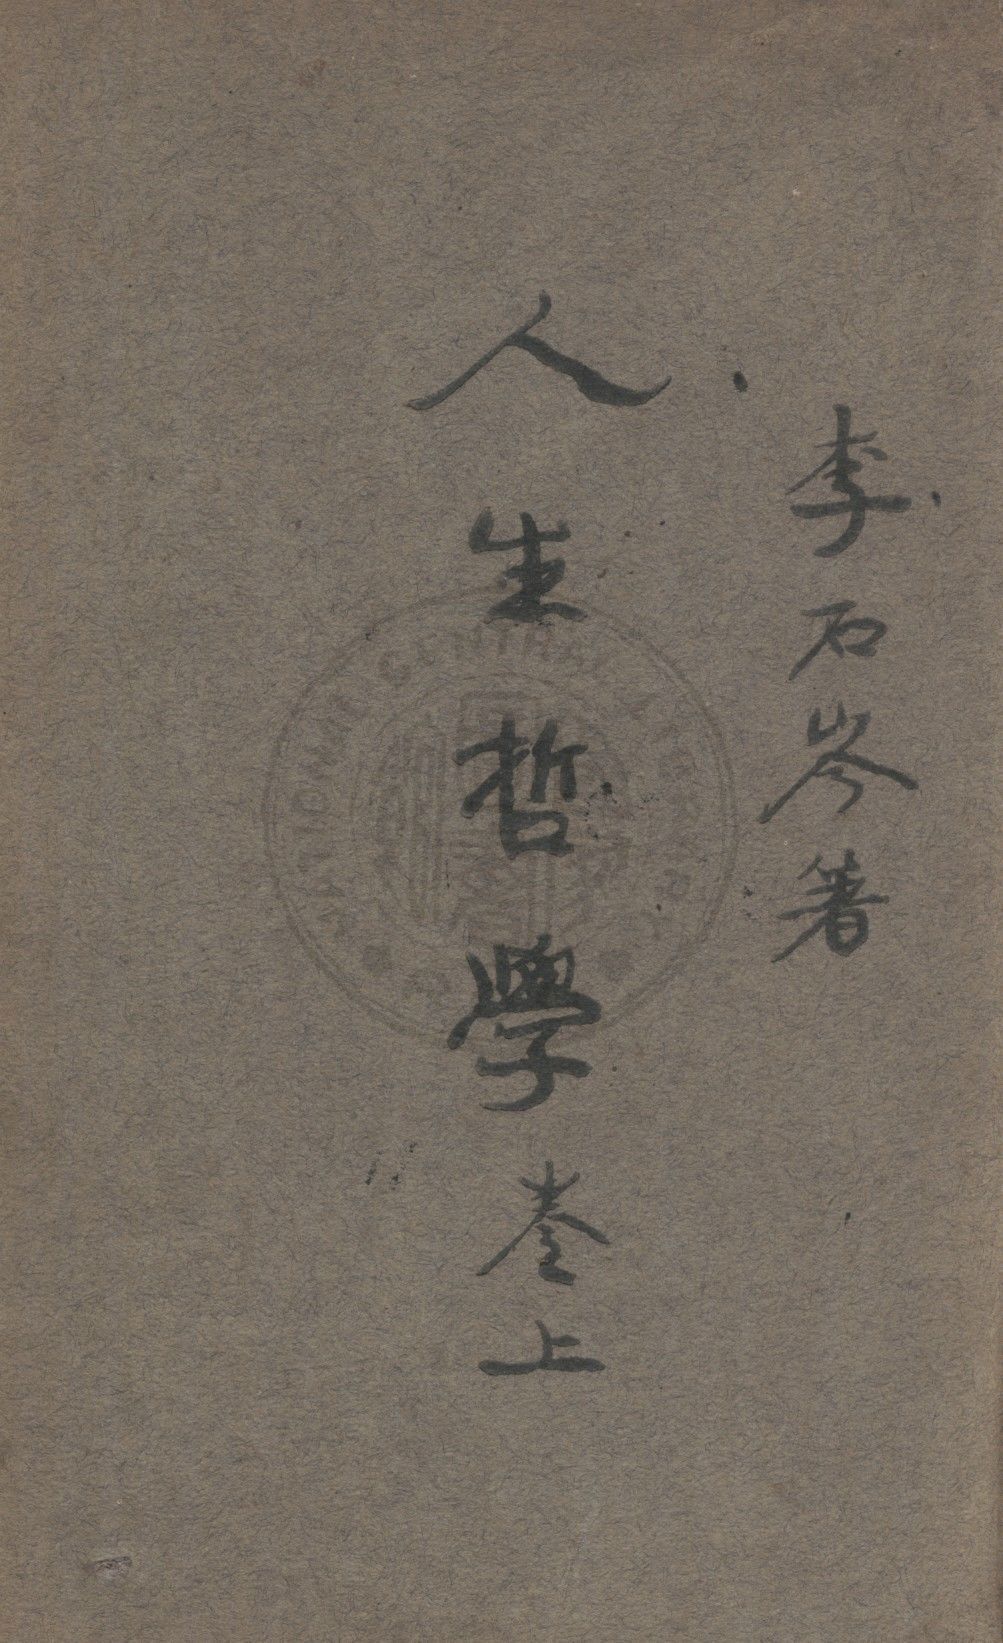 李石岑著
人生哲學卷上
NATIONAL CENTRAL LIBRARY